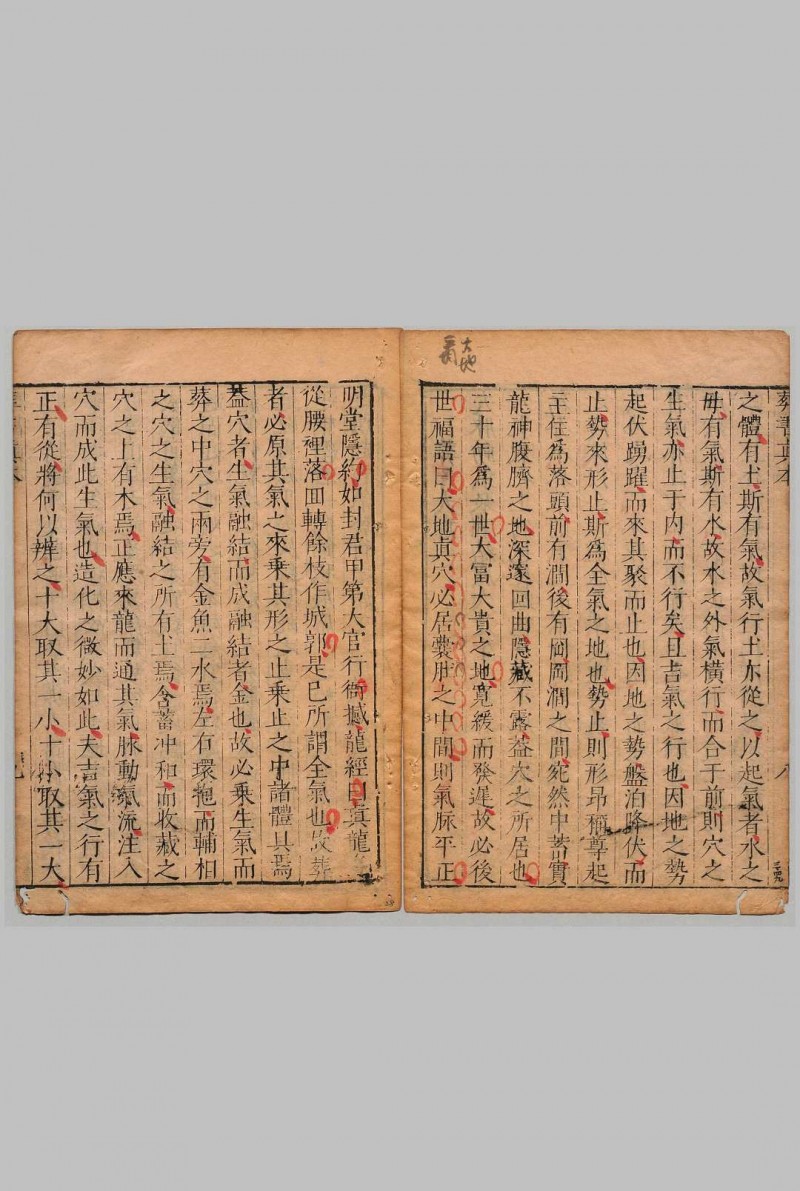 大地
葬書真本
八
之體有土斯有氣故氣行土亦從之以起氣者水之
母有氣斯有水故水之外氣橫行而合于前則穴之
生氣亦止于内而不行矣且吉氣之行也因地之勢
起伏踴躍而來其聚而止也因地之勢盤泊降伏而
止勢來形止斯爲全氣之地也勢止則形昂稱尊起
主在爲落頭前有澗後有岡岡澗之間宛然中蓄實
龍神腹臍之地深邃回曲隱藏不露葢穴之所居也
三十年爲一世大富大貴之地寬緩而發遲故必後
世福語曰大地真穴必居囊肚之中間則氣脉平正
明堂隱約如封君甲第大官行衙撼龍經曰真龍
從腰裡落回轉餘枝作城郭是已所謂全氣也故葬
者必原其氣之來乘其形之止乘止之中諸體具焉
葢穴者生氣融結而成融結者金也故必乘生氣而
葬之中穴之兩旁有金魚二水焉左右環抱而輔相
之穴之生氣融結之所有土焉含蓄冲和而收藏之
穴之上有木焉正應來龍而通其氣脉動氣流注入
穴而成此生氣也造化之微妙如此夫吉氣之行有
正有從將何以辨之十大取其一小十小取其一大